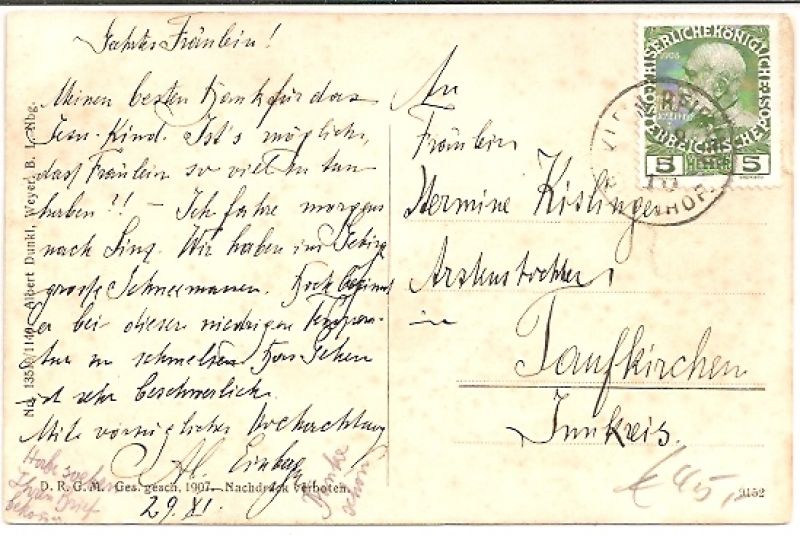 Fräulein!
Meinen besten Dank für das
Jesu-Kind. Ist's möglich,
dass Fräulein so viel zu tun
haben?! – Ich fahre morgen
nach Linz. Wir haben im Gebirg
große Schneemassen. Doch beginnt
er bei dieser niedrigen Tempera-
tur zu schmelzen. Das Gehen
ist sehr beschwerlich.
Mit vorzüglicher Hochachtung
Al.
29. XI.
Habe soeben
Ihren Brief
bekommen
Danke
schön
An
Fräulein
Hermine Kislinger
Arztenstochter
in
Taufkirchen
Innkreis.
KAISERLICHE KÖNIGLICHE
ÖSTERREICHISCHE
1908
5 HELLER 5
HOF
Albert Dunkl, Weyer, B. I. Nbg.
D. R. G. M. Ges. gesch. 1907. – Nachdruck verboten.
9152